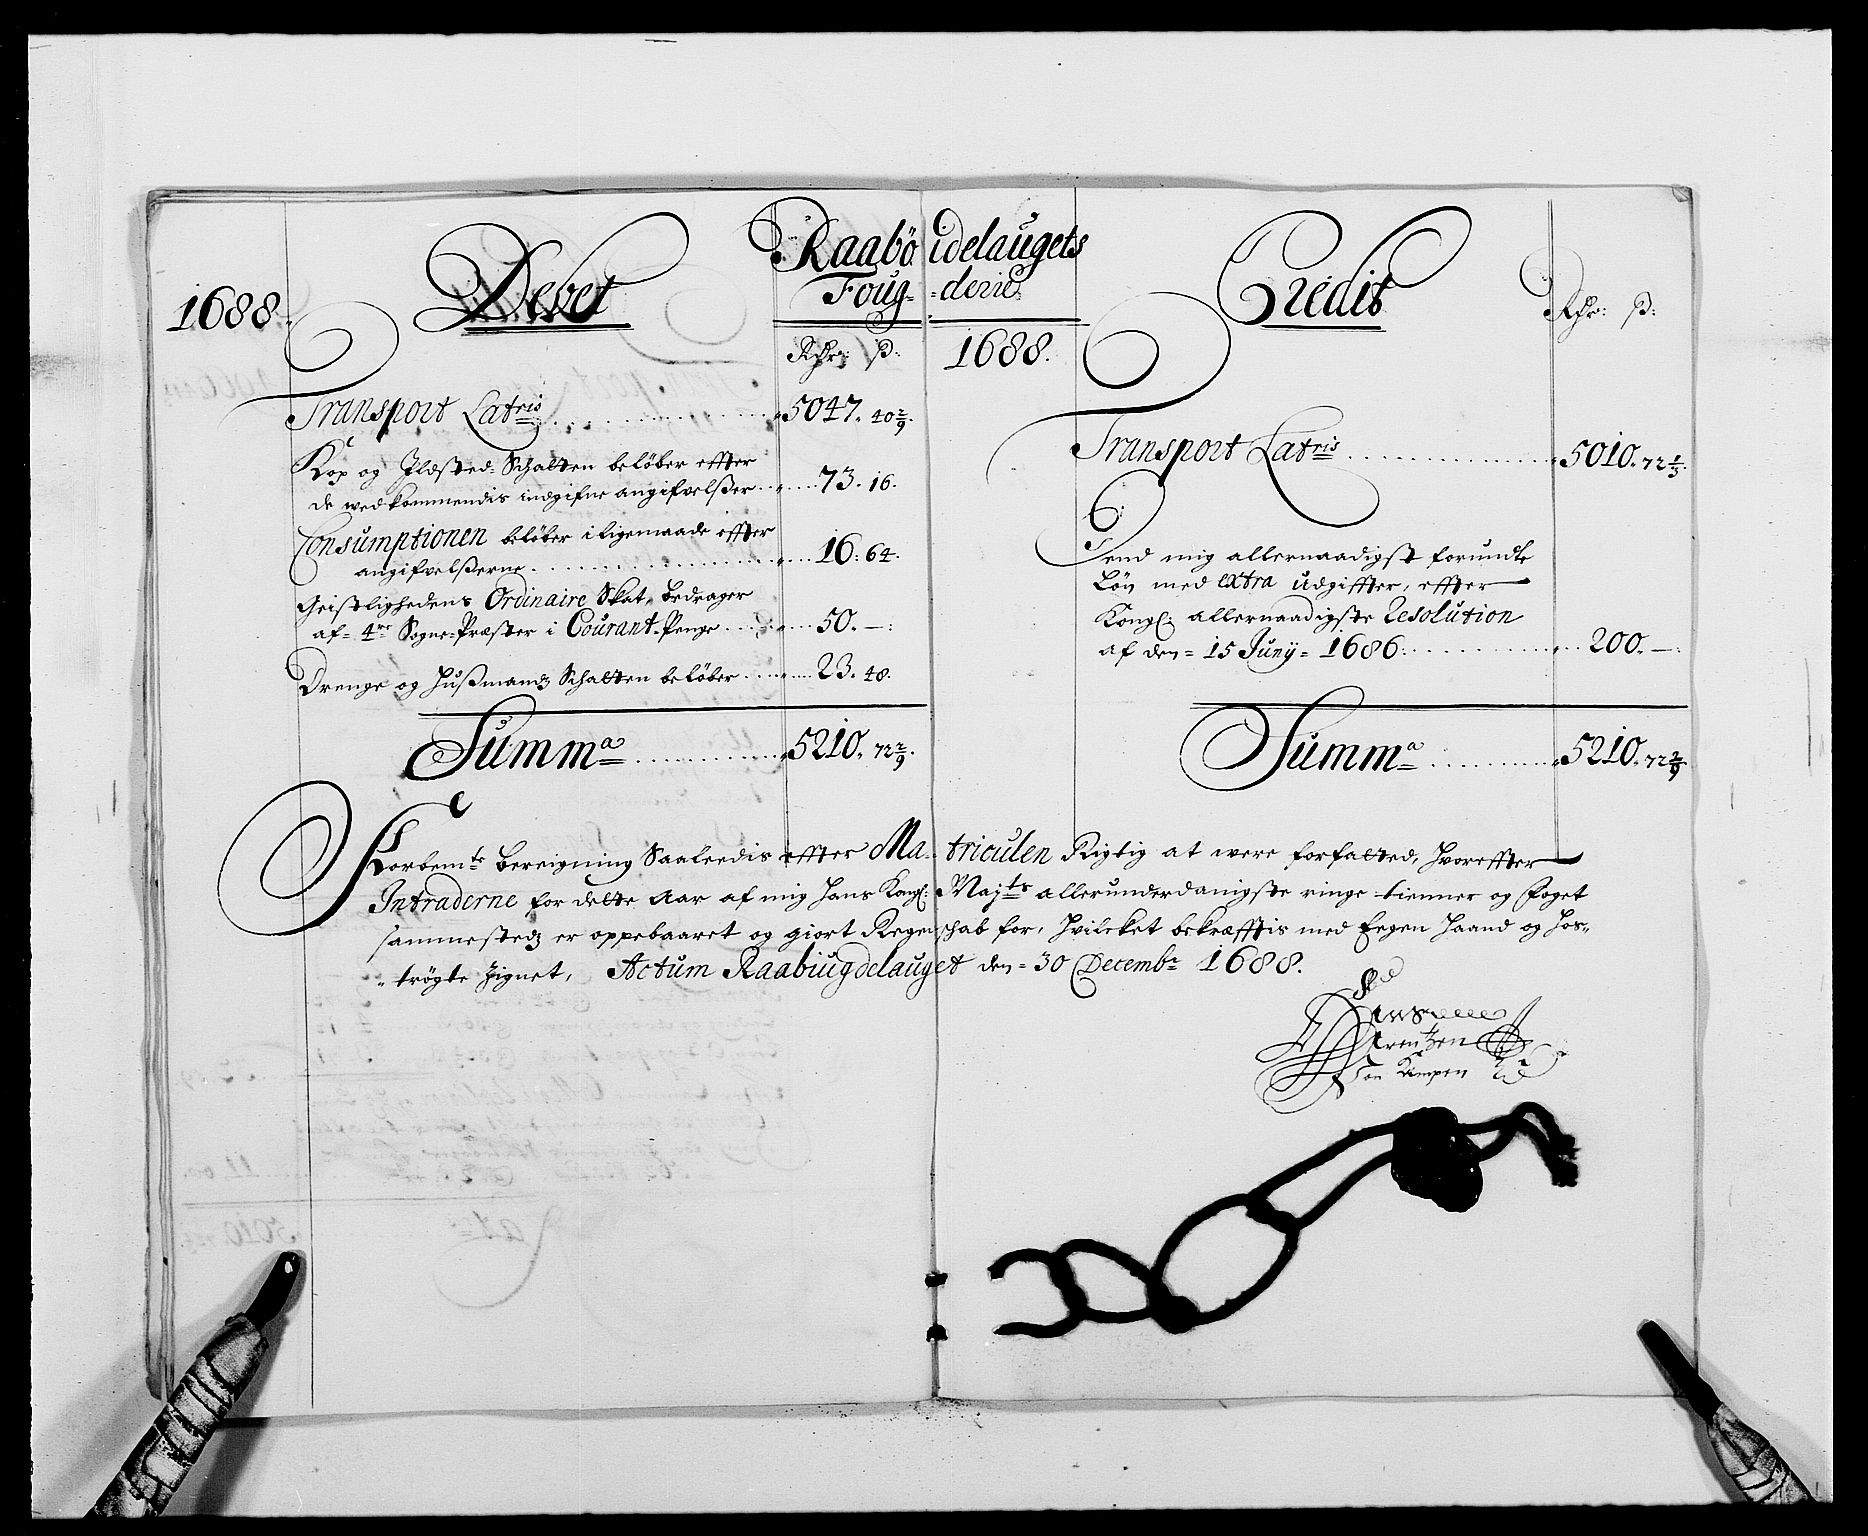 1688
Debet
Raabö idelaugets
Foug= =derie
Credit
Rdr: ß:
Rdr: ß:
1688.
Transport Latris 5047. 40 2/9.
Kop og Ildsted Schatten beløber effter
de wedkommendis indgifne angifvelßer 73. 16.
Consumptionen beløber i ligemaade effter
angifvelßerne 16: 64.
Geistlighedens Ordinaire Skat, bedrager
af 4re Sogne-Præster i Courant-Penge 50. —:
Drenge og Hußmandz Schatten beløber 23. 48.
Summa 5210. 72 2/9.
Transport Latris 5010. 72 1/3.
6:
end mig allernaadigst forundte
Løn med extra udgiffter, effter
Kongl: allernaadigste Resolution
af den 15 Junij 1686: 200. —:
Summa 5210. 72 2/9
Forbemte bereigning Saaleedis effter Ma- triculen Rigtig at were forfatted, hvoreffter
Intraderne for dette Aar af mig hans Kongl: Majts allerunderdanigste ringe tienner og foget
sammestedz er oppebaaret og giort Regenschab for, hvilcket bekræfftis med Eegen Haand og hos-
trögte Zignet, Actum Raabiugdelauget den 30 Decembr 1688.
von Kampen